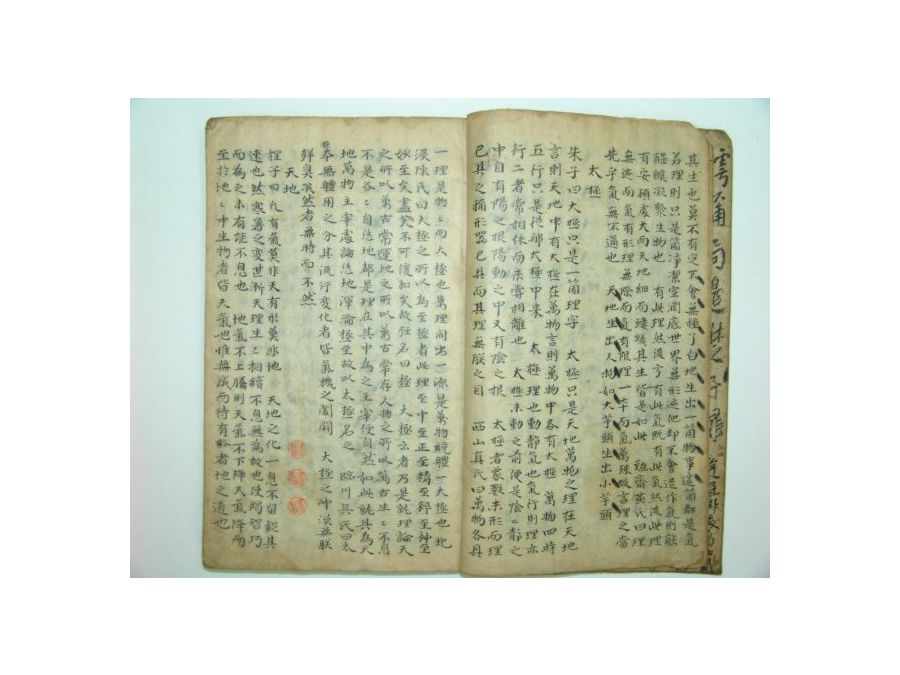 其生也莫不有定不會無種了白地生出一箇物事這箇都是氣
若理則只是箇淨潔空濶底世界無形迹他却不會造作氣則能
醞釀凝聚生物也 有此理然後有此氣既有此氣然後此理
有安頓處大而天地細而螻蟻其生皆是如此 勉齋黃氏曰理
無迹而氣有形理無際而氣有限理一本而氣萬殊故言理之當
先乎氣無不通也 天地生出人物如大芋頭生出小芋頭
太極
朱子曰太極只是一箇理字 太極只是天地萬物之理在天地
言則天地中有太極在萬物言則萬物中各有太極 萬物四時
五行只是從那太極中來 太極理也動靜氣也氣行則理亦
行二者常相依而未嘗相離也 太極未動之前便是陰陰靜之
中自有陽之根陽動之中又有陰之根 太極者象數未形而理
已具之稱形器已具而其理無朕之目 西山真氏曰萬物各具
一理是物物而太極也萬理同出一源是萬物統體一太極也 北
溪陳氏曰太極之所以為至極者此理至中至正至精至粹至神至
妙至矣盡矣不可復加矣故强名曰極 太極云者乃是就理論天
之所以萬古常運地之所以萬古常存人物之所以萬古生生不息
不是各各自恁地都是理在其中為之主宰便自然如此就其為天
地萬物主宰處論恁地渾淪極至故以太極名之 臨川吳氏曰太
極本無體用之分其流行變化者皆氣機之闔闢 太極之冲漠無朕
聲臭泯然者無時而不然
天地
程子曰凡有氣莫非天有形莫非地 天地之化一息不留疑其
速也然寒暑之變甚漸天理生生相續不息無為故也使竭智巧
而為之未有能不息也 地氣不上騰則天氣不下降天氣降而
至於地地中生物者皆天氣也惟無成而代有終者地之道也